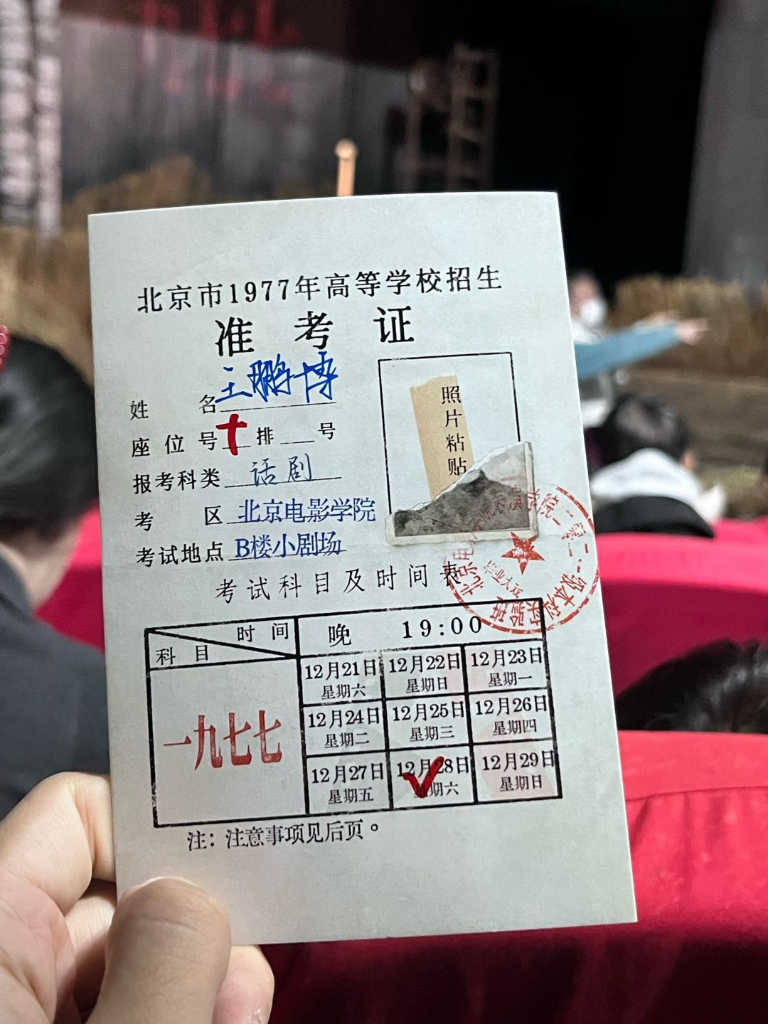 北京市1977年高等学校招生
准考证
姓名 王鹏博
座位号 十 排 号
报考科类 话剧
考区 北京电影学院
考试地点 B楼小剧场
照片粘贴
考试科目及时间表
时间 科目 晚 19:00
一九七七
12月21日 星期六 12月22日 星期日 12月23日 星期一
12月24日 星期二 12月25日 星期三 12月26日 星期四
12月27日 星期五 12月28日 星期六 12月29日 星期日
注：注意事项见后页。
毕业大戏